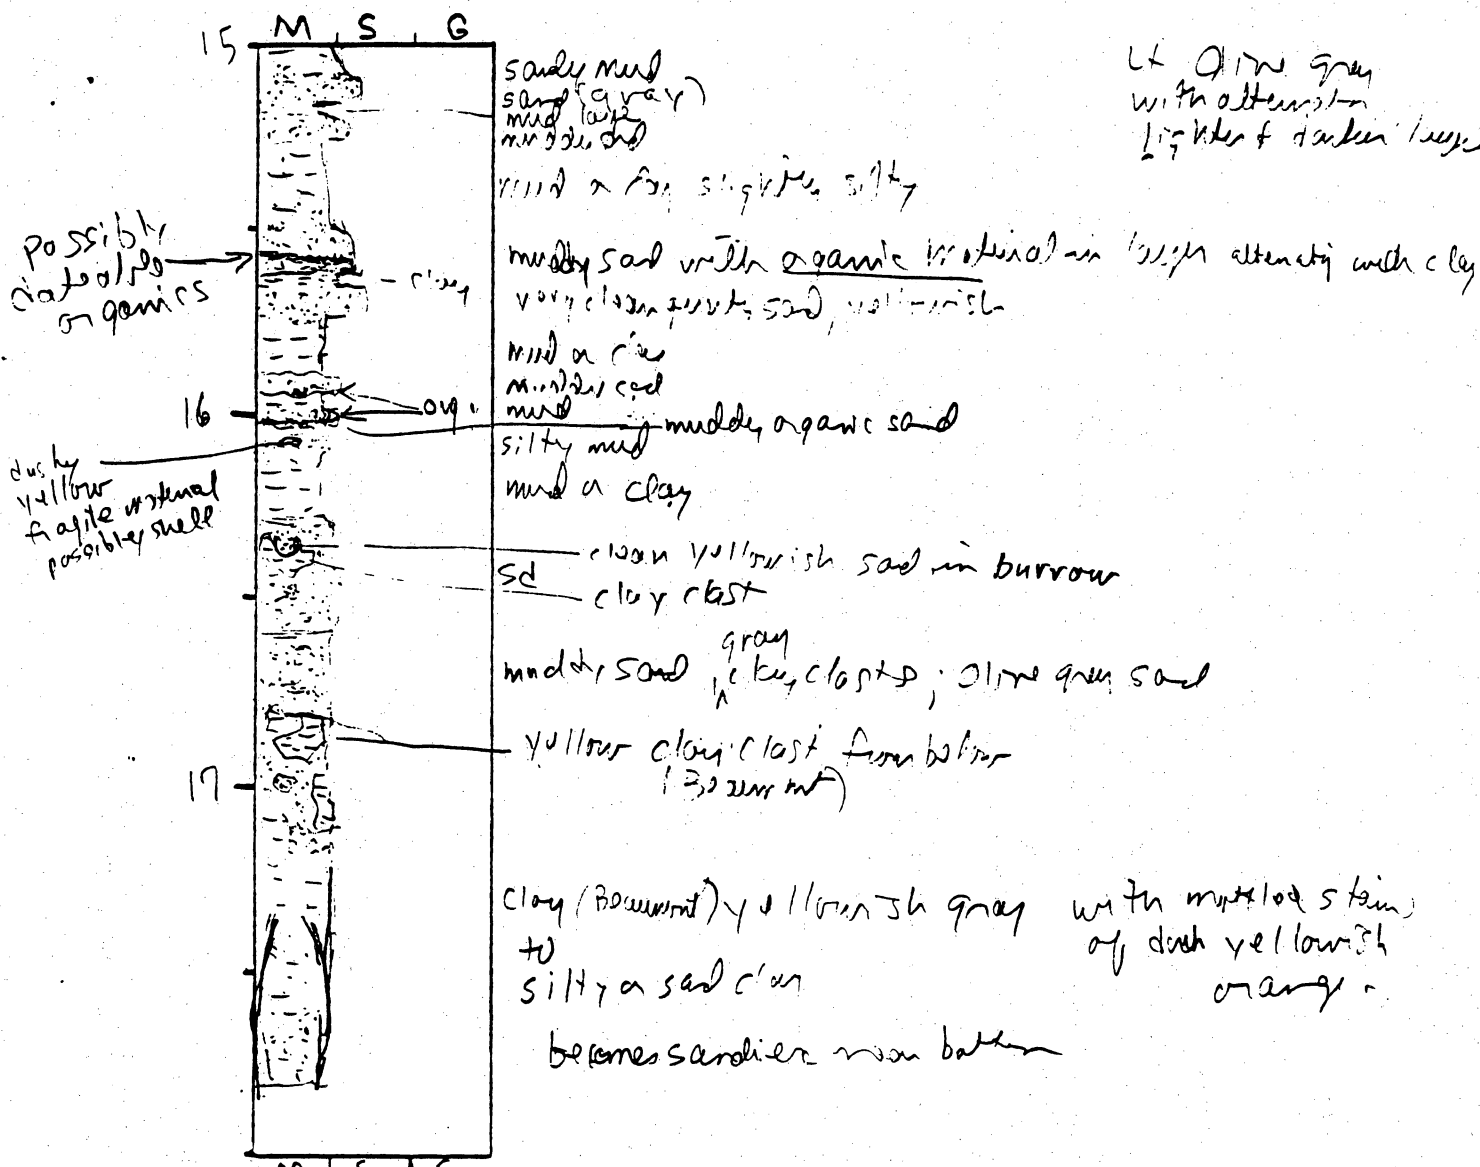 M S G
15
sandy mud
sand (gray)
mud layer
muddy sd
Lt Olive gray
with alternatn
lighter & darker layers
mud or clay slightly silty
possibly
dateable
organics
muddy sand with organic material in layer alternatig with clay
- clay
very clean quartz sand, yellowish
mud or clay
muddy sad
16
org.
mud
muddy organic sand
silty mud
dusky
yellow
fragile material
possibly shell
mud or clay
clean yellowish sad in burrow
sd
clay clast
gray
muddy sand, ^ clay clasts; Olive gray sand
yellow clay clast from below
(Beaumont)
17
clay (Beaumont) yellowish gray with mottled stains
to of dark yellowish
silty or sad clay orange.
becomes sandier near bottom
M S G